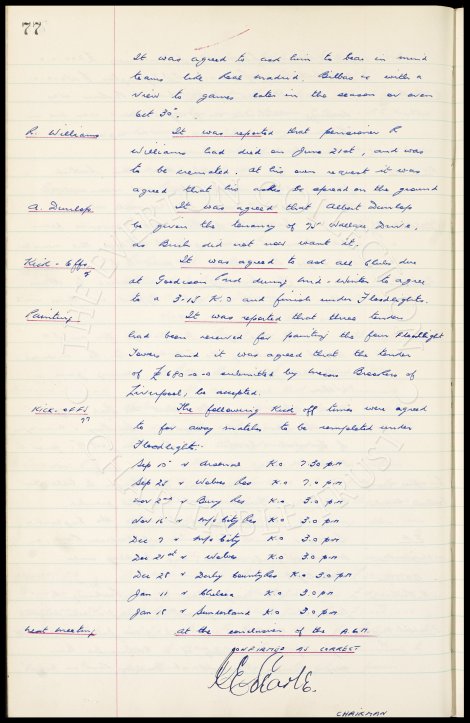 77
It was agreed to ask him to bear in mind
teams like Real Madrid Bilbao &c with a
view to games later in the season or even
Oct 30th.
R. Williams It was reported that pensioner R
Williams had died on June 21st, and was
to be cremated. At his own request it was
agreed that his ashes be spread on the ground
A. Dunlop. It was agreed that Albert Dunlop
be given the tenancy of Wallace Drive,
as did not now want it.
Kick-Offs It was agreed to ask all Clubs due
at Goodison Park during mid-winter to agree
to a 3-15 K.O and finish under Floodlights.
Painting It was reported that three tenders
had been received for painting the four Floodlight
Towers and it was agreed that the tender
of £690-0-0 submitted by Brothers of
Liverpool, be accepted.
KICK-OFFS The following Kick off times were agreed
to for away matches to be completed under
Floodlights:
Sep 10 v Arsenal K.O 7.30 pm
Sep 25 v Wolves Res K.O 7.0 pm
Nov 2nd v Bury Res K.O 3.0 pm
Nov 16 v M/c City Res K.O 3.0 pm
Dec 7 v M/c City K.O 3.0 pm
Dec 21st v Wolves K.O 3.0 pm
Dec 28 v Derby County Res K.O 3.0 pm
Jan 11 v Chelsea K.O 3.0 pm
Jan 18 v Sunderland K.O 3.0 pm
Next meeting At the conclusion of the A.G.M.
CONFIRMED AS CORRECT
CHAIRMAN